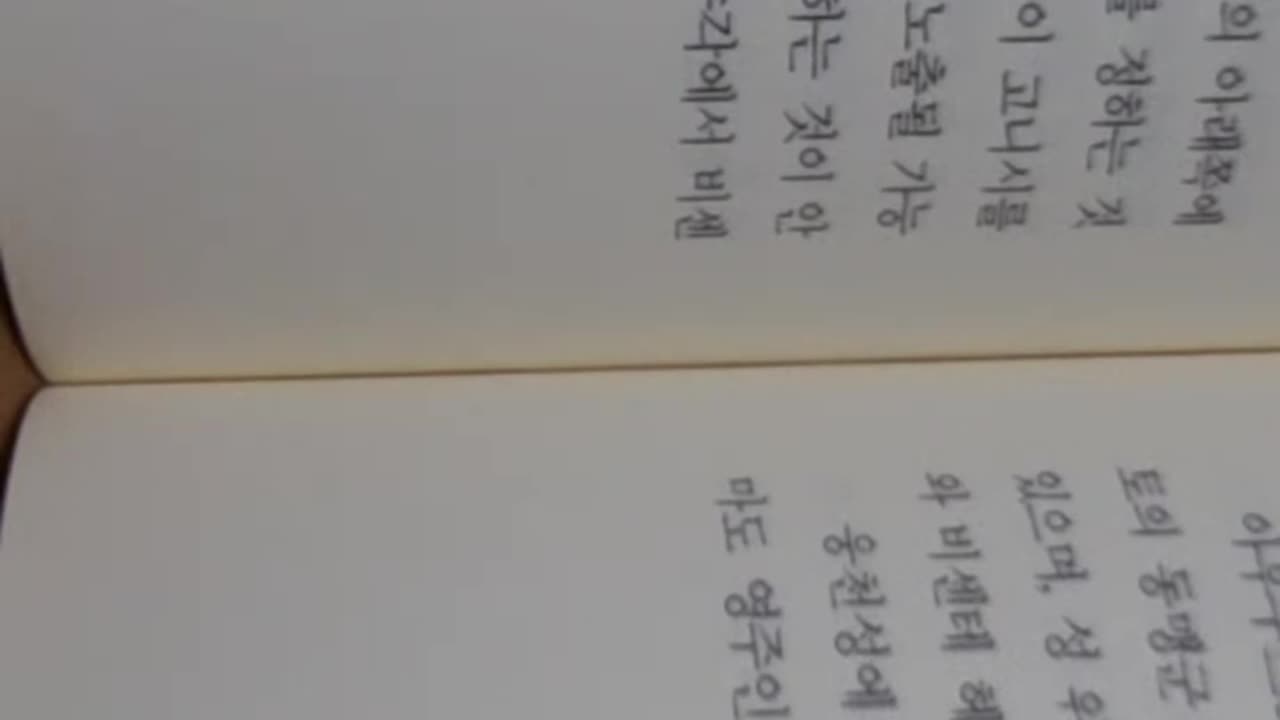 의 아래쪽에
를 하는 것
이 고니시를
노출될 가능
하는 것이 안
각에서 비센
토의 동맹군
있으며, 성
와 비센테 헤
웅천성에
마도 영주인